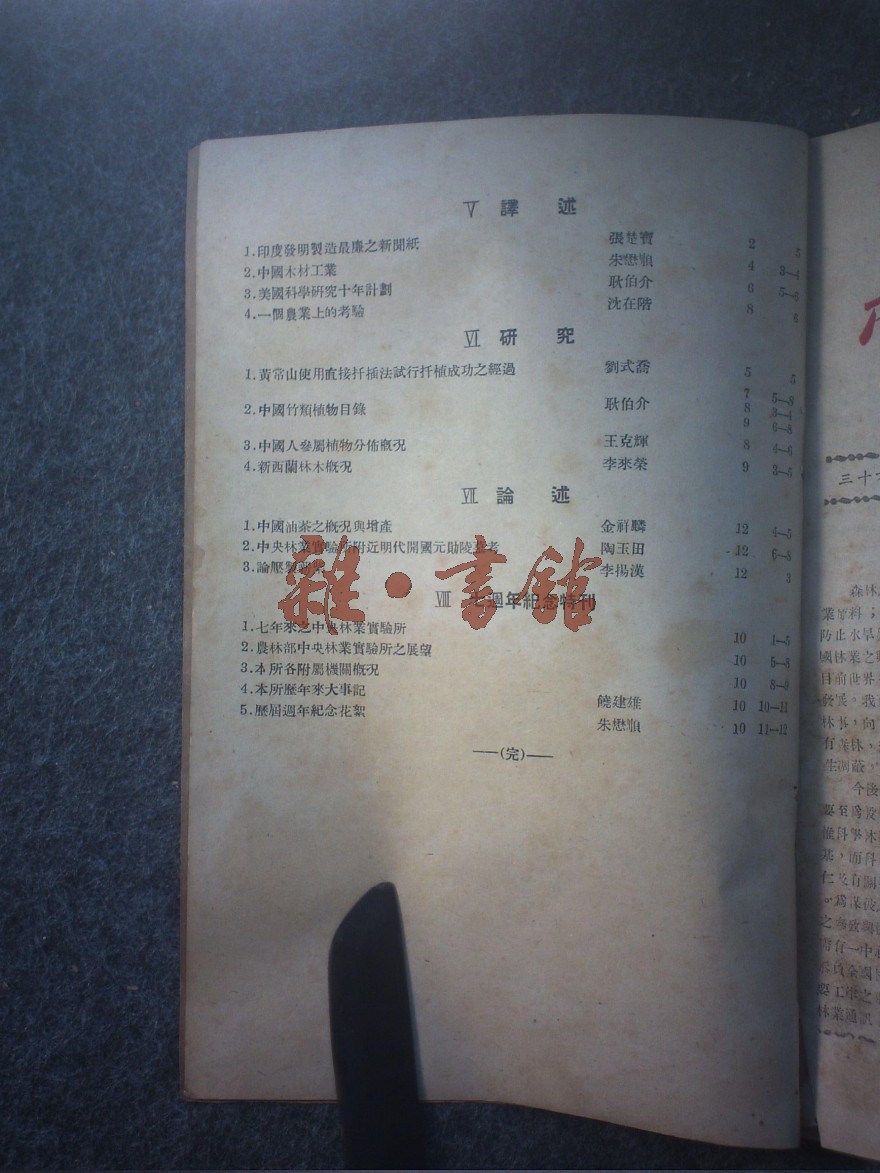 Ⅴ 譯 述
1.印度發明製造最廉之新聞紙 張楚寶 2 5
2.中國木材工業 朱懋順 4 3—4
3.美國科學研究十年計劃 耿伯介 6 5—6
4.一個農業上的考驗 沈在階 8 6
Ⅵ 研 究
1.黃常山使用直接扦插法試行扦植成功之經過 劉式喬 5 5
7 5—8
2.中國竹類植物目錄 耿伯介 8 3—4
9 6—8
3.中國人參屬植物分佈概況 王克輝 8 4—6
4.新西蘭林木概況 李來榮 9 3—5
Ⅶ 論 述
1.中國油茶之概況與增產 金祥麟 12 4—5
2.中央林業實驗所附近明代開國元勛陵墓考 陶玉田 12 6—8
3.論壓製 李揚漢 12 3
Ⅷ 七週年紀念特刊
1.七年來之中央林業實驗所 10 1—5
2.農林部中央林業實驗所之展望 10 5—8
3.本所各附屬機關概況 10 8—9
4.本所歷年來大事記 饒建雄 10 10—11
5.歷屆週年紀念花絮 朱懋順 10 11—12
—(完)—
雜·書館
三十六
森林
業資料；
防止水旱
國林業之
目前世界
發展，我
林事，向
有森林，
生凋蔽，
今後
要至爲
推科學
基，而科
仁及有關
。爲謀彼
之
常有一中
全國
要工作之
林業通訊